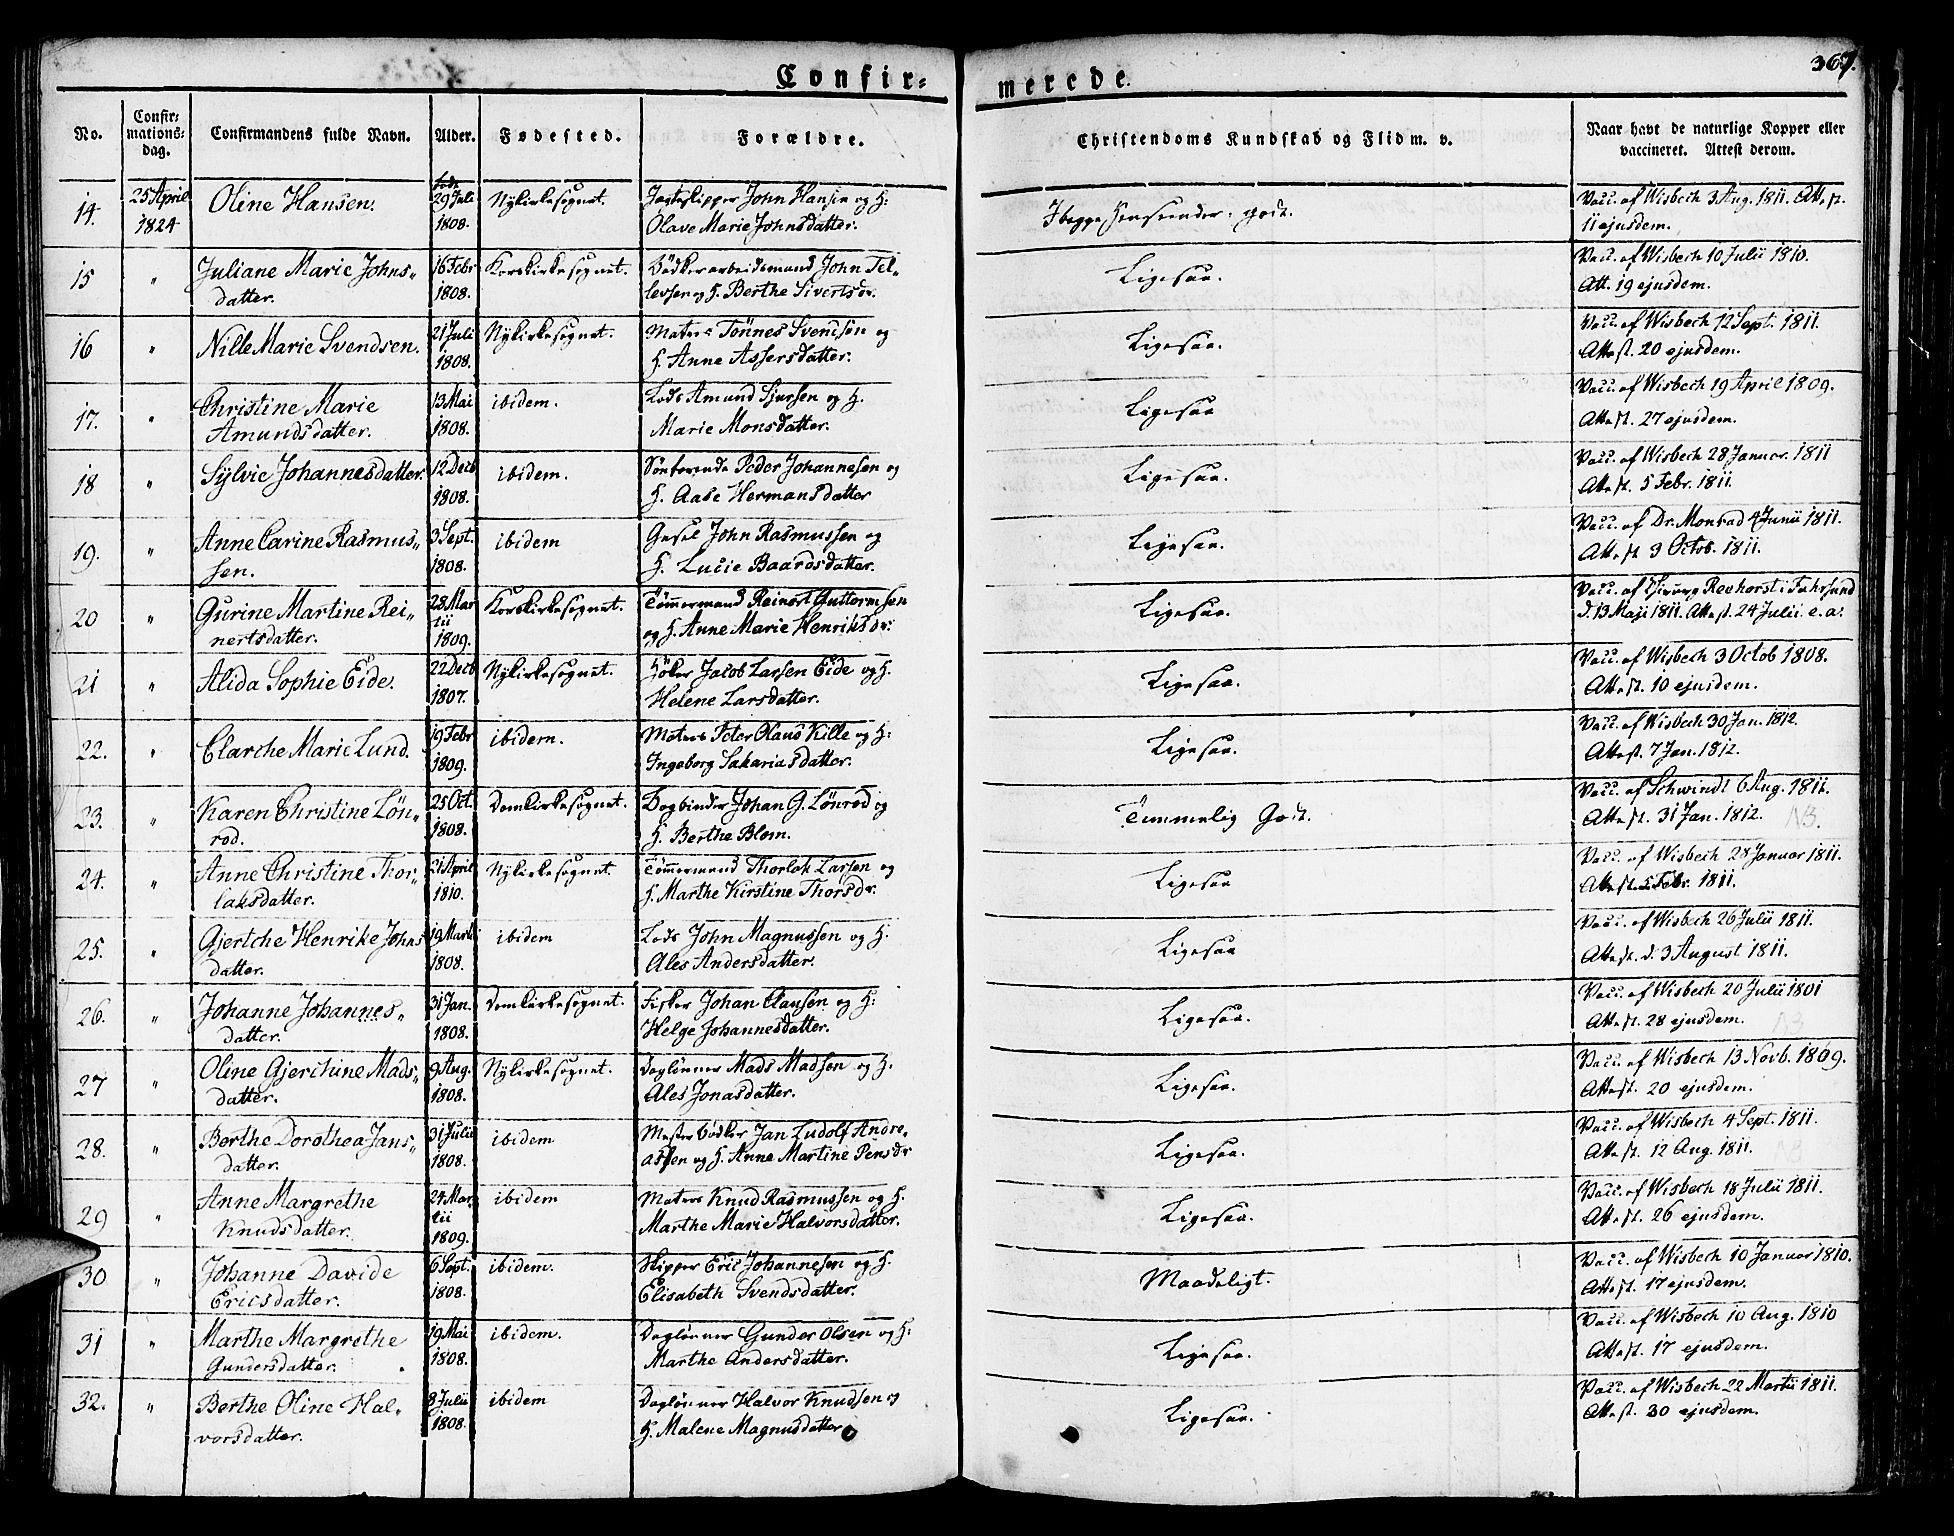 Confirmerede.
367.
No.
Confirmationsdag.
Confirmandens fulde Navn.
Alder.
Fødested.
Forældre.
Christendoms Kundskab og Flid m. v.
Naar havt de naturlige Kopper eller vaccineret. Attest derom.
14. 25 April 1824 Oline Hansen. født 29 Juli 1808. Nykirkesognet. Jagteskipper John Hansen og H:
Olave Marie Johnsdatter. I begge Henseender godt. Vacc. af Wisbech 3 Aug. 1811. Att. st.
11 ejusdem.
15 " Juliane Marie Johns„ 16 Febr Korskirkesognet. Bödkerarbeidsmand John Tel„ Ligesaa. Vacc. af Wisbech 10 Julii 1810.
datter. 1808. levsen og H. Berthe Sivertsdr. Att. 19 ejusdem.
16 " Nille Marie Svendsen. 21 Juli Nykirkesognet. Matros Tönnes Svendsön og Ligesaa. Vacc. af Wisbech 12 Sept. 1811.
1808. H. Anne Assersdatter. Attest. 20 ejusdem.
17. " Christine Marie 13 Mai ibidem. Lods Amund Sjursen og H. Ligesaa Vacc. af Wisbech 19 April 1809.
Amundsdatter. 1808. Marie Monsdatter. Attest. 27 ejusdem.
18 " Sylvie Johannesdatter. 12 Decb ibidem. Peder Johannesen og Ligesaa. Vacc. af Wisbech 28 Januar. 1811
1808. H. Aase Hermansdatter Attest. 5 Febr. 1811.
19. " Anne Carine Rasmus„ 3 Sept. ibidem John Rasmussen og Ligesaa. Vacc. af Dr. Monrad 4 Junii 1811.
sen. 1808. H. Lucie Baardsdatter. Attest 3 Octob. 1811.
20 " Gurine Martine Rei- 28 Mar Korskirkesognet. Tömmermand Reinert Guttormsen Ligesaa. Vacc. af Chirurg Reehorst i Fahrsund
nertsdatter. tii 1809. og H. Anne Marie Henriksdr. d. 13 Maji 1811. Attest. 24 Julii e. a.
21 " Alida Sophie Eide. 22 Decb Nykirkesognet. Höker Jacob Larsen Eide og H. Ligesaa. Vacc. af Wisbech 3 Octob 1808.
1807. Helene Larsdatter. Attest. 10 ejusdem.
22. " Clarche Marie Lund. 19 Febr ibidem. Matros Peter Olaus Kille og H: Ligesaa. Vacc. af Wisbech 30 Jan. 1812.
1809. Ingeborg Sakariasdatter. Attest. 7 Jan. 1812.
23. " Karen Christine Lön„ 25 Oct. Domkirkesognet. Bogbinder Johan G. Lönrod og Temmelig Godt. Vacc. af Schwindt 6 Aug. 1811.
rod. 1808. H. Berthe Blom. Attest. 31 Jan. 1812. NB.
24. " Anne Christine Thor„ 21 April Nykirkesognet. Tömmermand Thorlak Larsen og Ligesaa Vacc. af Wisbech 28 Januar 1811.
laksdatter. 1810. H. Marthe Kirstine Thorsdr. Attest. 5 Febr. 1811.
25. " Gjertche Henrike Johns 19 Marti ibidem Lods John Magnussen og H. Ligesaa Vacc. af Wisbech 26 Julii 1811.
datter. 1808. Ales Andersdatter. Attest. d. 3 August 1811.
26. " Johanne Johannes„ 31 Jan. Domkirkesognet. Fisker Johan Clausen og H: Ligesaa. Vacc. af Wisbech 20 Julii 1801
datter. 1808. Helge Johannesdatter. Attest. 28 ejusdem. NB
27 " Oline Gjerthine Mads„ 9 Aug. Nykirkesognet. Daglönner Mads Madsen og H. Ligesaa. Vacc. af Wisbech 13 Novb. 1809.
datter. 1808. Ales Jonasdatter. Attest. 20 ejusdem.
28. " Berthe Dorothea Jans„ 31 Julii ibidem Mester Bödker Jan Ludolf Andre„ Ligesaa. Vacc. af Wisbech 4 Sept. 1811.
datter. 1808. assen og H. Anne Martine Pensdr Attest. 12 Aug. 1811. NB
29 " Anne Margrethe 24 Mar ibidem Matros Knud Rasmussen og H. Ligesaa. Vacc. af Wisbech 18 Julii 1811.
Knudsdatter. tii 1809. Marthe Marie Halvorsdatter. Attest. 26 ejusdem.
30 " Johanne Davide 6 Sept. ibidem. Skipper Eric Johannesen og H. Maadeligt. Vacc. af Wisbech 10 Januar 1810.
Ericsdatter. 1808. Elisabeth Svendsdatter. Attest. 17 ejusdem.
31 " Marthe Margrethe 19 Mai ibidem. Daglönner Gunder Olsen og H: Ligesaa. Vacc. af Wisbech 10 Aug. 1810
Gundersdatter. 1808. Marthe Andersdatter. Attest. 17 ejusdem.
32. " Berthe Oline Hal„ 8 Julii ibidem Daglönner Halvor Knudsen og Ligesaa. Vacc. af Wisbech 22 Martii 1811.
vorsdatter. 1808. H. Malene Magnusdatter Attest. 30 ejusdem.